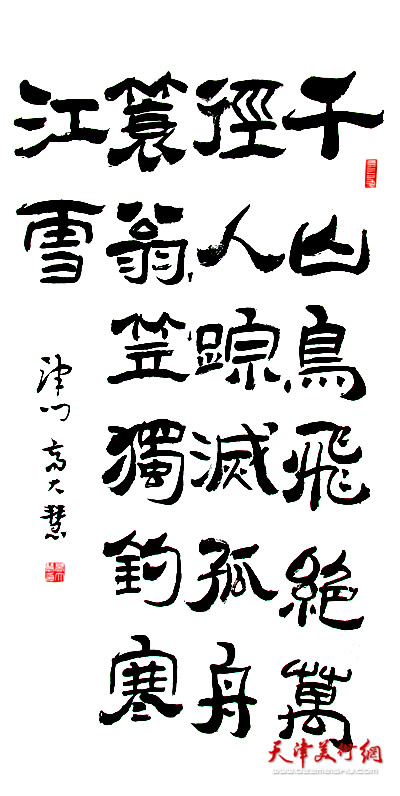 千山鳥飛絶萬
徑人踪滅孤舟
蓑翁笠獨釣寒
江雪
津門高大慧
天津美術網